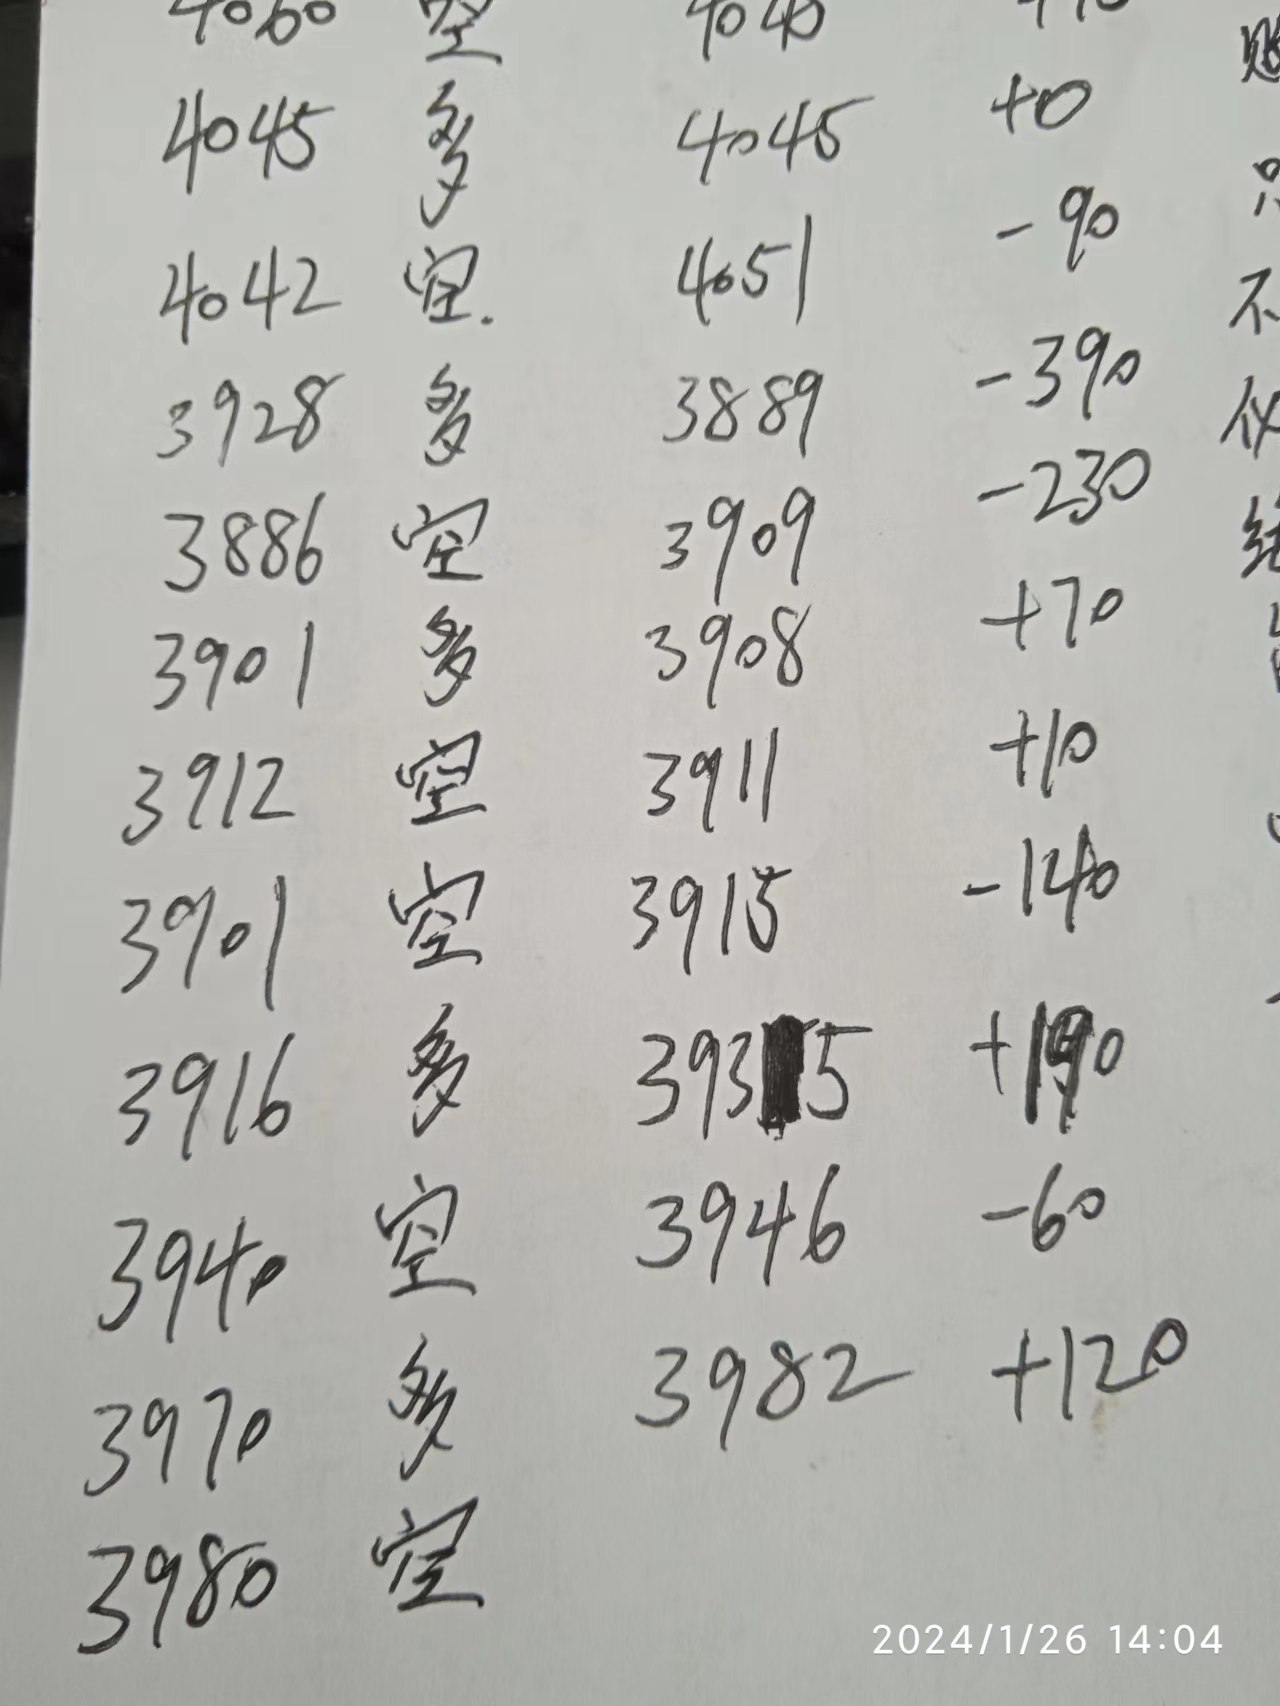 4060 空 4045
4045 多 4045 +0
4042 空. 4051 -90
3928 多 3889 -390
3886 空 3909 -230
3901 多 3908 +70
3912 空 3911 +10
3901 空 3915 -140
3916 多 3935 +190
3940 空 3946 -60
3970 多 3982 +120
3980 空
只
不
仅
2024/1/26 14:04